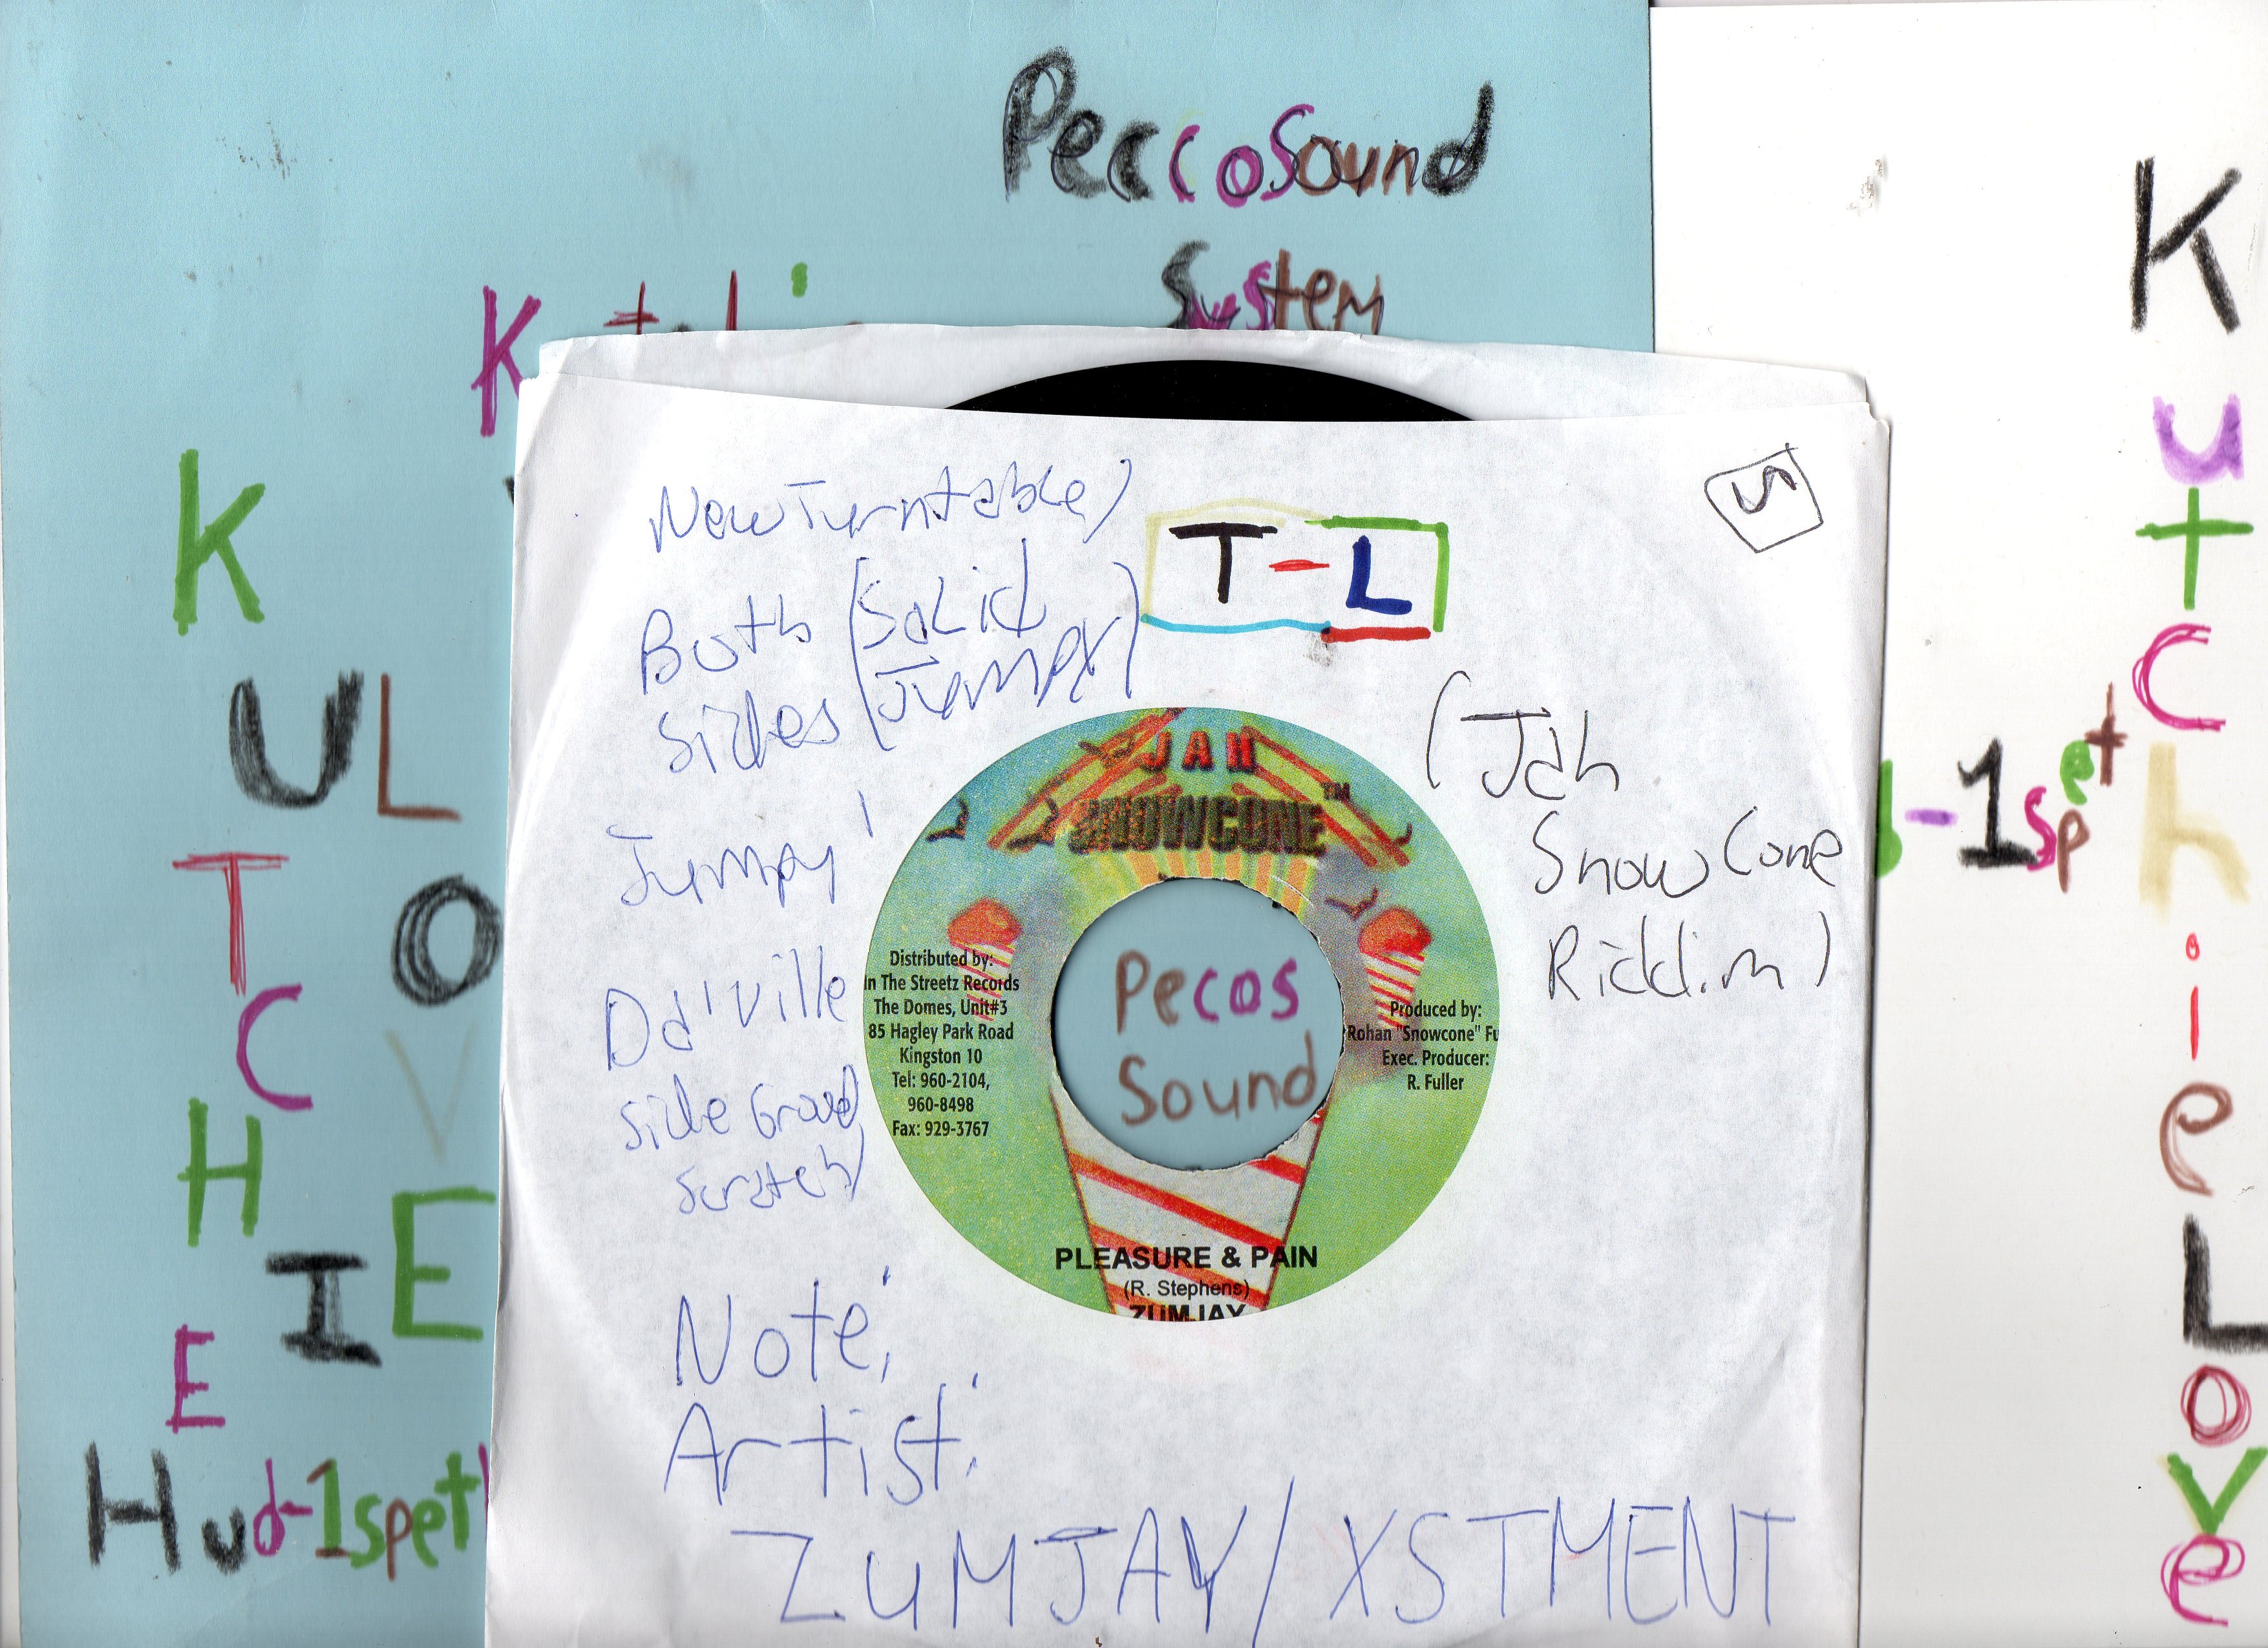 Peccosound
System
K
U L
T
C O
H V
I E
E
Hud-1spet
K
u
t
c
h
i
e
L
o
v
e
-1spet
New Turntable)
Both (Solid
sides Jumpy)
Jumpy
Da'ville
side Good
scratch)
T-L
S
(Jah
Snow Cone
Riddim)
JAH
SNOWCONE™
Distributed by:
In The Streetz Records
The Domes, Unit#3
85 Hagley Park Road
Kingston 10
Tel: 960-2104,
960-8498
Fax: 929-3767
Pecos
Sound
Produced by:
Rohan "Snowcone" Fu
Exec. Producer:
R. Fuller
PLEASURE & PAIN
(R. Stephens)
ZUMJAY
Note;
Artist:
ZUMJAY/XSTMENT